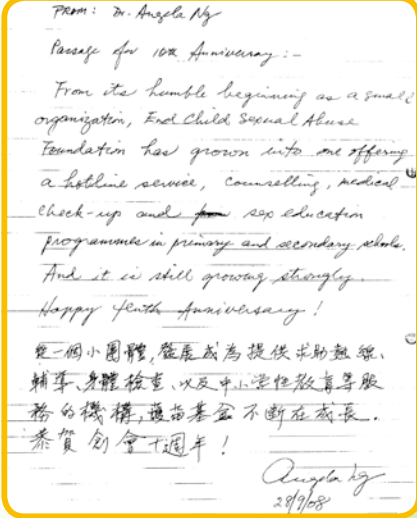 FROM: Dr. Angela Ng
Passage for 10th Anniversary:-
From its humble beginning as a small
organization, End Child Sexual Abuse
Foundation has grown into one offering
a hotline service, counselling, medical
check-up and sex education
programmes in primary and secondary schools.
And it is still growing strongly.
Happy Tenth Anniversary!
從一個小團體,發展成為提供求助熱線、
輔導、身體檢查、以及中小学性教育等服
務的機構,護苗基金不斷在成長.
恭賀創會十週年!
Angela Ng
28/9/08